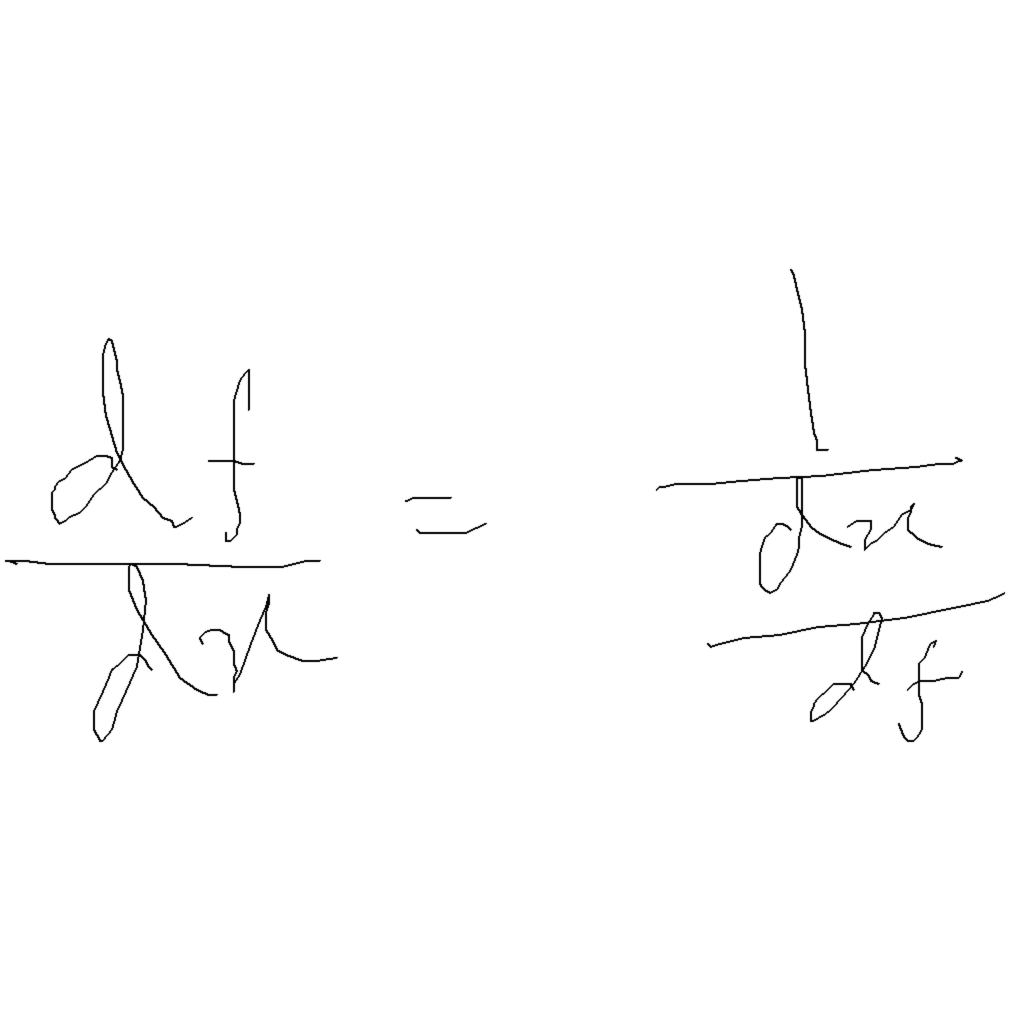 \frac{df}{dx} = \frac{1}{\frac{dx}{df}}